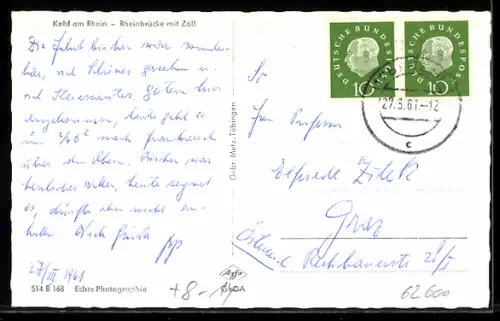 Kehl am Rhein – Rheinbrücke mit Zoll
Die Fahrt bisher war wunder-
bar, viel Schönes gesehen u.
viel Interessantes. Gestern hier
angekommen, heute geht es
um nach Frankreich
über den Rhein. Bisher war
herrliches Wetter, heute regnet
es, dürfte aber nicht an-
halten. Grüße
27/III 1961
514 B 168 Echte Photographie
Gebr. Metz, Tübingen
DEUTSCHE BUNDESPOST
10
DEUTSCHE BUNDESPOST
10
27.3.61.-12
c
Professor
Elfriede Zitek
Graz
Österreich
Rechbauerstr.
+8-
62600